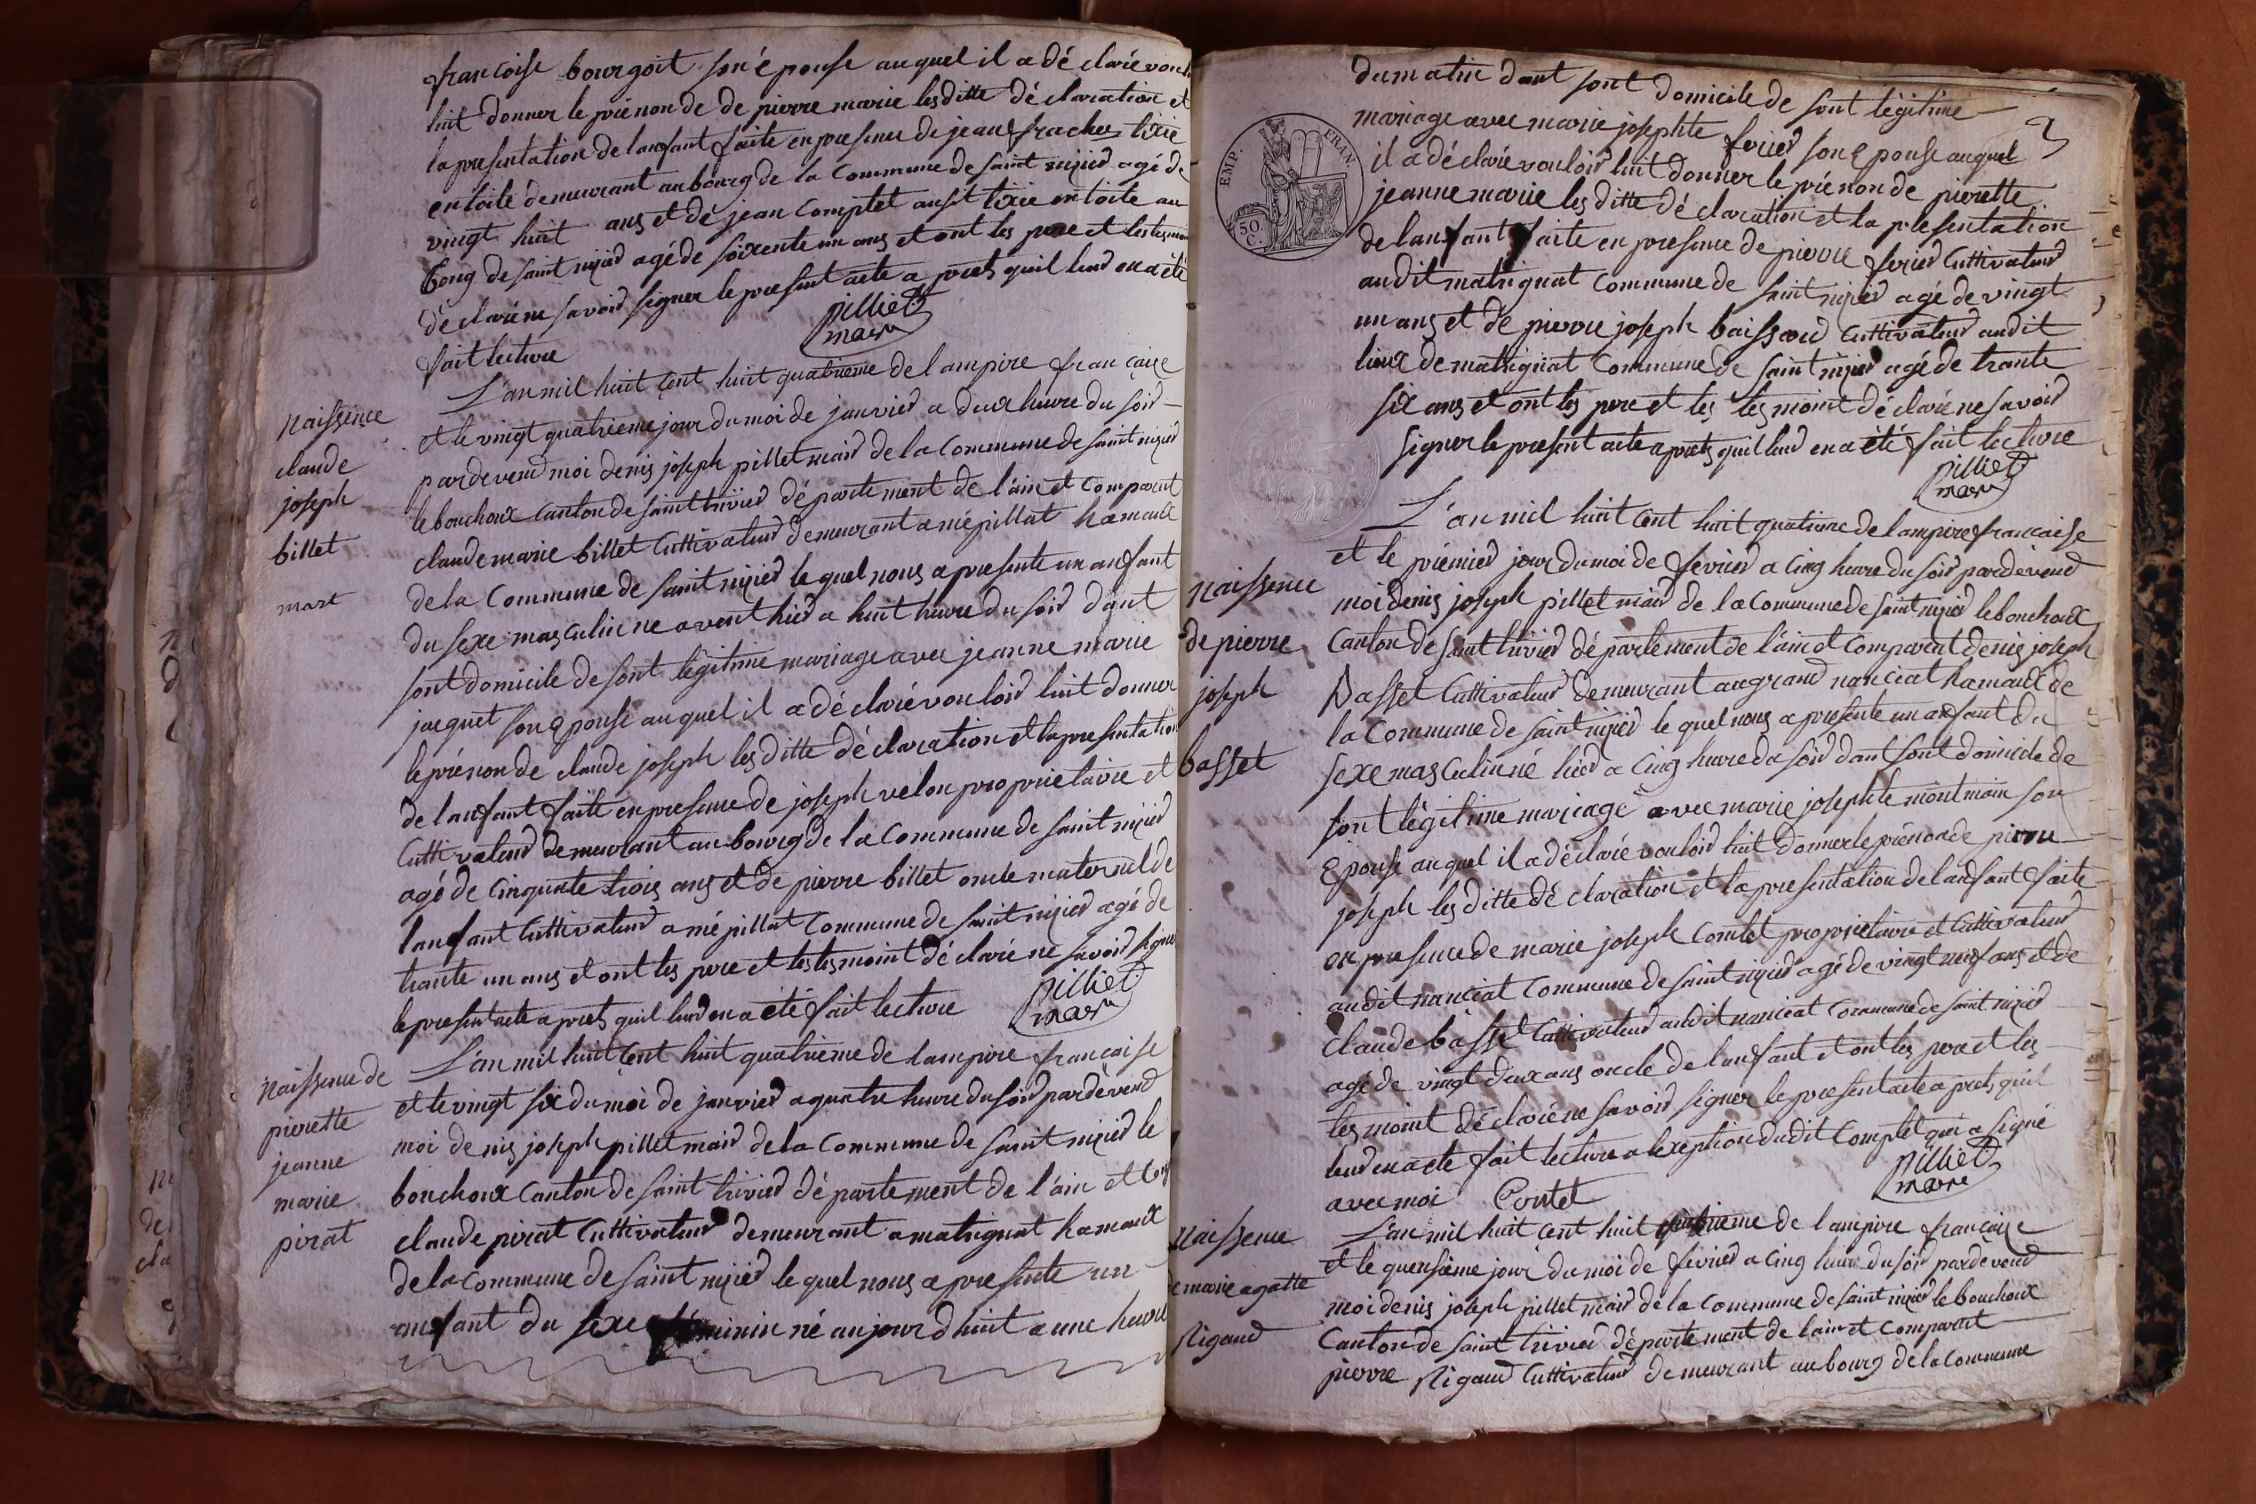 françoise bourgoit son épouse auquel il a déclaré voul
luit donner le prénon de de pierre marie lesditte déclaration et
la presentation de lanfant faite en presence de jean frachet tixie
en toile demeurant au bourg de la Commune de saint nizied agé de
vingt huit ans et de jean Complet ausit tixie en toile au
boug de saint nizied agé de soixente un ans et ont les pere et les tesmoi
déclaré ne savoid signer le present acte a prets quil leud en a été
fait lecture
pilliet
maire
Naissence
claude
joseph
billet
mort
L'an mil huit Cent huit quatrieme de lampire française
et le vingt quatrieme jour du moi de janvied a deux heure du soid
pardevend moi denis joseph pillet maid de la Commune de saint nizied
le bouchoux Canton de saint trivied département de l'ain et Comparut
claude marie billet Cuttivateud demeurant a mépillat hamaux
de la Commune de saint nizied le quel nous a presente un anfant
du sexe masculin ne avent hied a huit heure du soid dant
sont domicile de sont légitime mariage avec jeanne marie
jacquet son épouse auquel il a déclaré vouloid luit donner
le prénon de claude joseph lesditte déclaration et la presentation
de lanfant faite en presence de joseph velon proprietaire et
Cuttivateud demeurant au bourg de la Commune de saint nizied
agé de Cinquante trois ans et de pierre billet oncle maternel de
lanfant Cuttivateud a mépillat Commune de saint nizied agé de
trante un ans et ont les pere et les tesmoint déclaré ne savoid signer
le present acte a prets quil leud en a été fait lecture
pilliet
maire
Naissence de
pierette
jeanne
marie
pirat
L'an mil huit Cent huit quatrieme de lampire française
et le vingt six du moi de janvied a quatre heure du soid pardevend
moi denis joseph pillet maid de la Commune de saint nizied le
bouchoux Canton de saint trivied département de l'ain et Com
claude pirat Cuttivateud demeurant a matrignat hamaux
de la Commune de saint nizied le quel nous a presente un
anfant du sexe féminin né aujourdhuit a une heure
3
EMP. FRAN.
50. C.
du matin dant sont domicile de sont légitime
mariage avec marie josephte favied son épouse auquel
il a déclaré vouloid luit donner le prénon de pierette
jeanne marie les ditte déclaration et la presentation
de lanfant faite en presence de pierre favied Cuttivateud
audit matrignat Commune de saint nizied agé de vingt
un ans et de pierre joseph baissoud Cuttivateud audit
lieux de matrignat Commune de saint nizied agé de trante
six ans et ont les pere et les tesmoint déclaré ne savoid
signer le present acte a prets quil leud en a été fait lecture
pilliet
maire
Naissence
de pierre
joseph
basset
L'an mil huit Cent huit quatrieme de lampire francaise
et le prémied jour du moi de févried a Cinq heure du soid pardevend
moi denis joseph pillet maid de la Commune de saint nizied le bouchoux
Canton de saint trivied département de l'ain et Comparut denis joseph
Basset Cuttivateud demeurant au grand nanciat hamaux de
la Commune de saint nizied le quel nous a presente un anfant du
sexe masculin né hied a Cinq heure du soid dant sont domicile de
sont légitime mariage avec marie josephte montmain son
épouse auquel il a déclaré vouloid luit donner le prénon de pierre
joseph les ditte déclaration et la presentation de lanfant faite
en presence de marie joseph Contet proprietaire et Cuttivateud
audit nanciat Commune de saint nizied agé de vingt neuf ans et de
claude basset Cuttivateud audit nanciat Commune de saint nizied
agé de vingt deux ans oncle de lanfant et ont les pere et les
tesmoint déclaré ne savoid signer le present acte a prets quil
leud en a ete fait lecture a lexeption dudit Complet qui a signé
avec moi Contet
pilliet
maire
Naissence
e marie agatte
Rigaud
L'an mil huit Cent huit quatrieme de lampire française
et le quensieme jour du moi de fevried a Cinq heure du soid pardevend
moi denis joseph pillet maid de la Commune de saint nizied le bouchoux
Canton de saint trivied département de lain et Comparut
pierre Rigaud Cuttivateud demeurant au bourg de la Commune